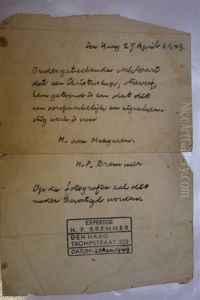 Den Haag 27 April 1949.
Ondergeteekende verklaart
dat een Christuskop, hierbij
hem getoond is en dat dit
een oorspronkelijk en eigenhan-
dig werk is van
H. van Meegeren.
H.P. Bremmer
Op de fotografie zal dit
nader bevestigd worden.
EXPERTISE
H. P. BREMMER
DEN HAAG
TROMPSTRAAT 322
DATUM: 27 APR. 1949
NiceArtGallery.com